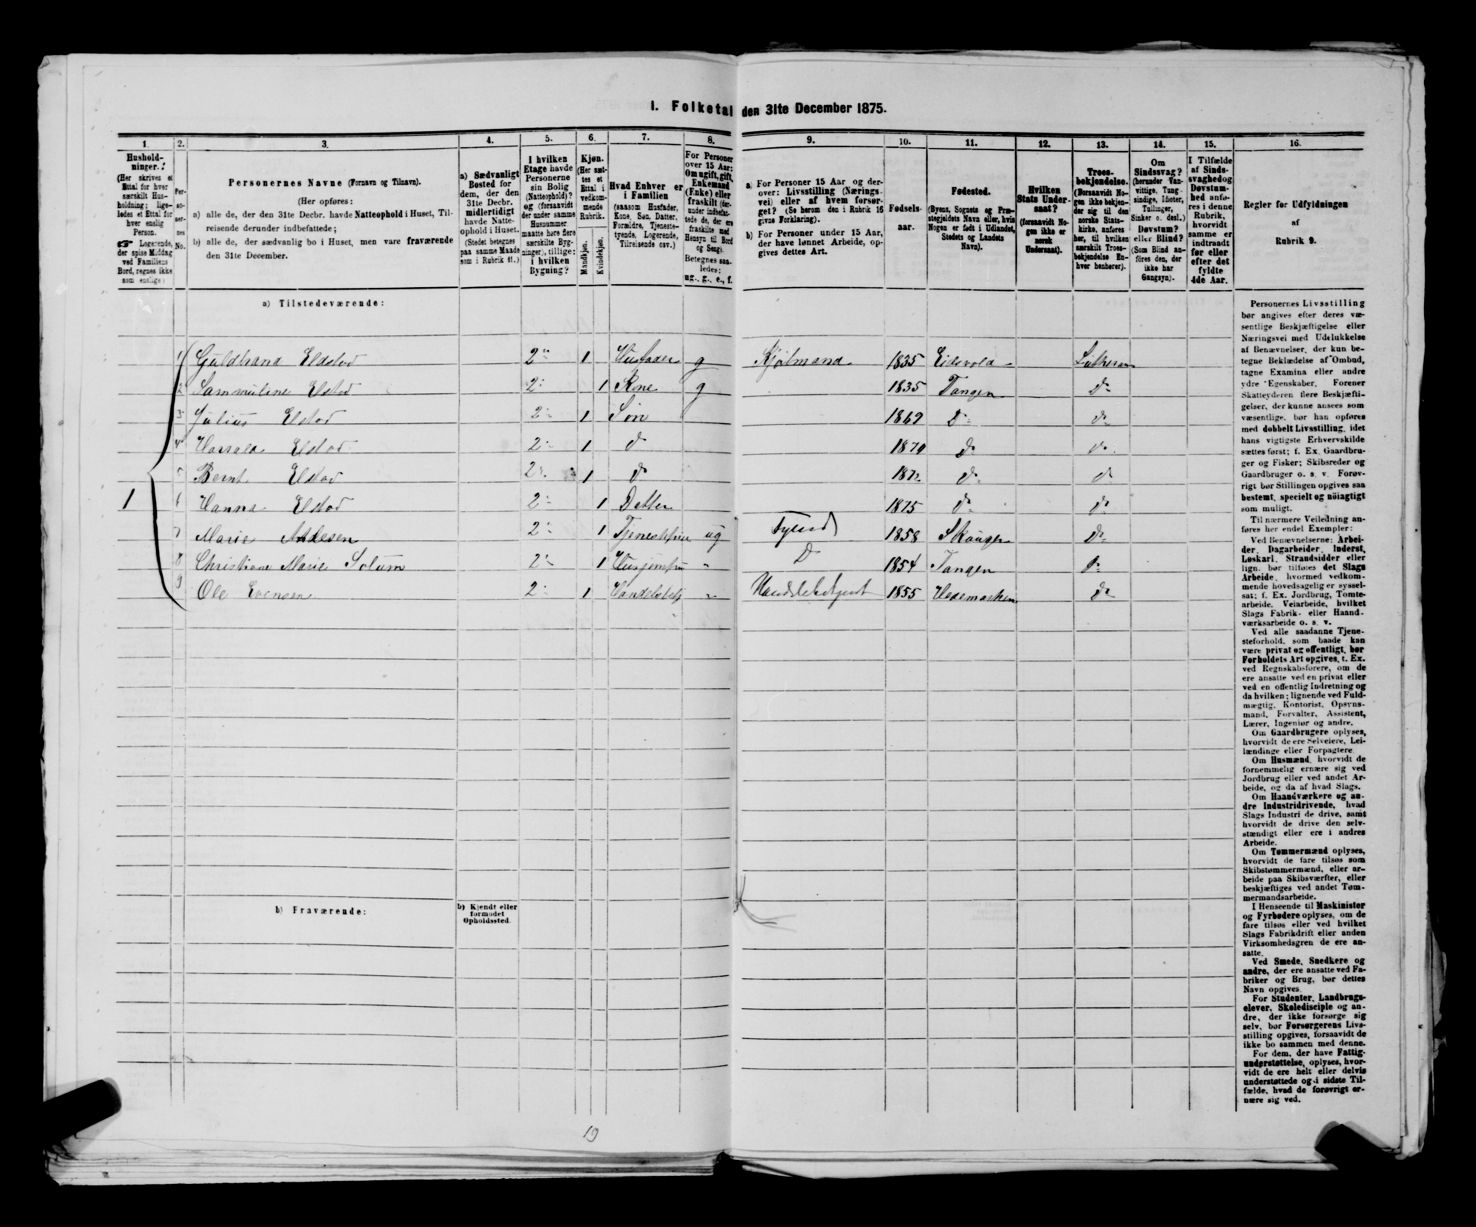 I. Folketal den 31te December 1875.
1. 2. 3. 4. 5. 6. 7. 8. 9. 10. 11. 12. 13. 14. 15. 16.
Husholdninger.
(Her skrives et Ettal for hver særskilt Husholdning; ligeledes et Ettal for hver enslig Person.
Logerende, der spise Middag ved Familiens Bord, regnes ikke som enslige)
Personernes No.
Personernes Navne (Fornavn og Tilnavn).
(Her opføres:
a) alle de, der den 31te Decbr. havde Natteophold i Huset, Tilreisende derunder indbefattede;
b) alle de, der sædvanlig bo i Huset, men vare fraværende den 31te December.
a) Sædvanligt Bosted for dem, der den 31te Decbr. midlertidigt havde Natteophold i Huset.
(Stedet betegnes paa samme Maade som i Rubrik 11.)
I hvilken Etage havde Personerne sin Bolig (Natteophold)? og (forsaavidt der under samme Husnummer maatte høre flere særskilte Bygninger), tillige: i hvilken Bygning?
Kjøn.
(Her sættes et Ettal i vedkommende Rubrik.
Mandkjøn. Kvindekjøn.
Hvad Enhver er i Familien
(saasom Husfader, Kone, Søn, Datter, Forældre, Tjenestetyende, Logerende, Tilreisende osv.)
For Personer over 15 Aar: Om ugift, gift, Enkemand (Enke) eller fraskilt
Betegnes saaledes: ug., g., e., f.
a) For Personer 15 Aar og derover: Livsstilling (Næringsvei) eller af hvem forsørget? (Se herom den i Rubrik 16 givne Forklaring).
b) For Personer under 15 Aar, der have lønnet Arbeide, opgives dettes Art.
Fødselsaar.
Fødested.
(Byens, Sognets og Præstegjeldets Navn eller, hvis Nogen er født i Udlandet, Stedets og Landets Navn).
Hvilken Stats Undersaat?
(forsaavidt Nogen ikke er norsk Undersaat).
Troesbekjendelse.
(Forsaavidt Nogen ikke bekjender sig til den norske Statskirke, anføres her, til hvilken særskilt Troesbekjendelse Enhver henhører).
Om Sindssvag? (herunder Vanvittige, Tungsindige, Idioter, Tullinger, Sinker o. desl.) Døvstum? eller Blind?
(Som Blind anføres den, der ikke har Gangsyn).
I Tilfælde af Sindssvaghed og Døvstumhed anføres i denne Rubrik, hvorvidt samme er indtraadt før eller efter det fyldte 4de Aar.
Regler for Udfyldningen af Rubrik 9.
a) Tilstedeværende:
1 Guldbrand Elstad 2 1 Husfader g 1835 Eidsvold Luthersk
2 Elstad 2 1 Kone g 1835 Tangen Do
3 Julius Elstad 2 1 Søn 1869 Do do
4 Elstad 2 1 d 1870 do do
5 Bernt Elstad 2 1 d do do
1 6 Hanna Elstad 2 1 Datter 1875 do do
7 Marie 2 1 ug 1858 Do
8 Christiane Marie Solum 2 1 " D 1854 Tangen do
9 Ole Evensen 2 1 " 1855 Hedemarken do
b) Fraværende:
b) Kjendt eller formodet Opholdssted.
Personernes Livsstilling bør angives efter deres væsentlige Beskjæftigelse eller Næringsvei med Udelukkelse af Benævnelser, der kun betegne Beklædelse af Ombud, tagne Examina eller andre ydre Egenskaber. Forener Skatteyderen flere Beskjæftigelser, der kunne ansees som væsentlige, bør han opføres med dobbelt Livsstilling, idet hans vigtigste Erhvervskilde sættes først; f. Ex. Gaardbruger og Fisker; Skibsreder og Gaardbruger o. s. v. Forøvrigt bør Stillingen opgives saa bestemt, specielt og nöiagtigt som muligt.
Til nærmere Veiledning anføres her endel Exempler:
Ved Benævnelserne: Arbeider, Dagarbeider, Inderst, Løskarl, Strandsidder eller lign. bør tilføies det Slags Arbeide, hvormed vedkommende hovedsagelig er sysselsat; f. Ex. Jordbrug, Tomtearbeide, Veiarbeide, hvilket Slags Fabrik- eller Haandværksarbeide o. s. v.
Ved alle saadanne Tjenesteforhold, som baade kan være privat og offentligt, bør Forholdets Art opgives, f. Ex. ved Regnskabsførere, om de ere ansatte ved en privat eller ved en offentlig Indretning og da hvilken; lignende ved Fuldmægtig, Kontorist, Opsynsmand, Forvalter, Assistent, Lærer, Ingeniør og andre.
Om Gaardbrugere oplyses, hvorvidt de ere Selveiere, Leilændinge eller Forpagtere.
Om Husmænd, hvorvidt de fornemmelig ernære sig ved Jordbrug eller ved andet Arbeide, og da af hvad Slags.
Om Haandværkere og andre Industridrivende, hvad Slags Industri de drive, samt hvorvidt de drive den selvstændigt eller ere i andres Arbeide.
Om Tømmermænd oplyses, hvorvidt de fare tilsøs som Skibstømmermænd, eller arbeide paa Skibsværfter, eller beskjæftiges ved andet Tømmermandsarbeide.
I Henseende til Maskinister og Fyrbødere oplyses, om de fare tilsøs eller ved hvilket Slags Fabrikdrift eller anden Virksomhedsgren de ere ansatte.
Ved Smede, Snedkere og andre, der ere ansatte ved Fabriker og Brug, bør dettes Navn opgives.
For Studenter, Landbrugselever, Skoledisciple og andre, der ikke forsørge sig selv, bør Forsørgerens Livsstilling opgives, forsaavidt de ikke bo sammen med denne.
For dem, der have Fattigunderstøttelse, oplyses, hvorvidt de ere helt eller delvis understøttede og i sidste Tilfælde, hvad de forøvrigt ernære sig ved.
19